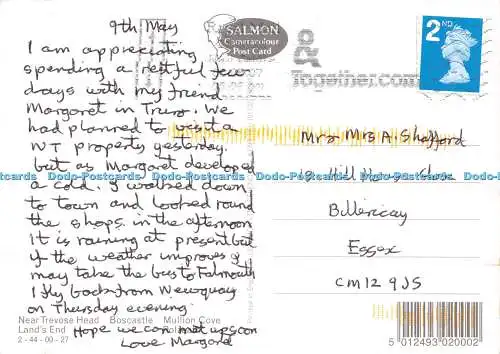 9th May
I am appreciating
spending a restful few
days with my friend
Margaret in Truro. We
had planned to visit a
NT property yesterday,
but as Margaret developed
a cold. I walked down
to town and looked round
the shops in the afternoon
It is raining at present but
if the weather improves I
may take the bus to Falmouth
I fly back from Newquay
on Thursday evening.
Hope we can meet up soon
Love Margaret
Near Trevose Head Boscastle Mullion Cove
Land's End
2-44-00-27
SALMON
Cameracolour
Post Card
&
Together.com
2ND
Mrs A Shafford
Hill House Close
Billericay
Essex
CM12 9JS
5 012493 020002
Dodo-Postcards Dodo-Postcards Dodo-Postcards Dodo-Postcards Dodo-Postcards